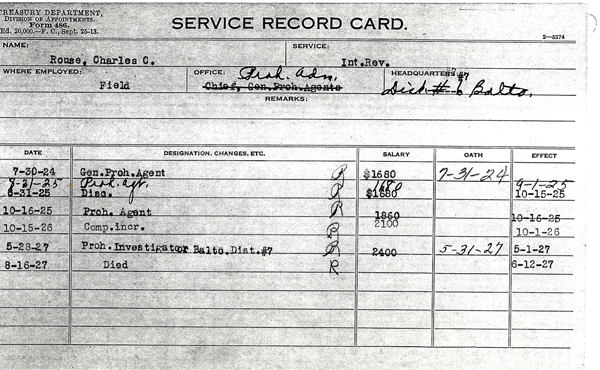 TREASURY DEPARTMENT,
DIVISION OF APPOINTMENTS.
Form 486.
Ed. 20,000.—F. C., Sept. 25-13.
SERVICE RECORD CARD.
2—5374
NAME: SERVICE:
Rouse, Charles C. Int.Rev.
WHERE EMPLOYED: OFFICE: Proh. Adm. HEADQUARTERS: #7
Field Chief, Gen.Proh.Agents Dist # 6 Balto.
REMARKS:
DATE DESIGNATION, CHANGES, ETC. SALARY OATH EFFECT
7-30-24 Gen.Proh.Agent R $1680 7-31-24
8-21-25 Proh. agt. 1680 9-1-25
8-31-25 Disc. R $1680 10-15-25
10-16-25 Proh. Agent R 1860 10-16-25
10-15-26 Comp.incr. R 2100 10-1-26
5-28-27 Proh.Investigator Balto.Dist.#7 R 2400 5-31-27 5-1-27
8-16-27 Died R 6-12-27